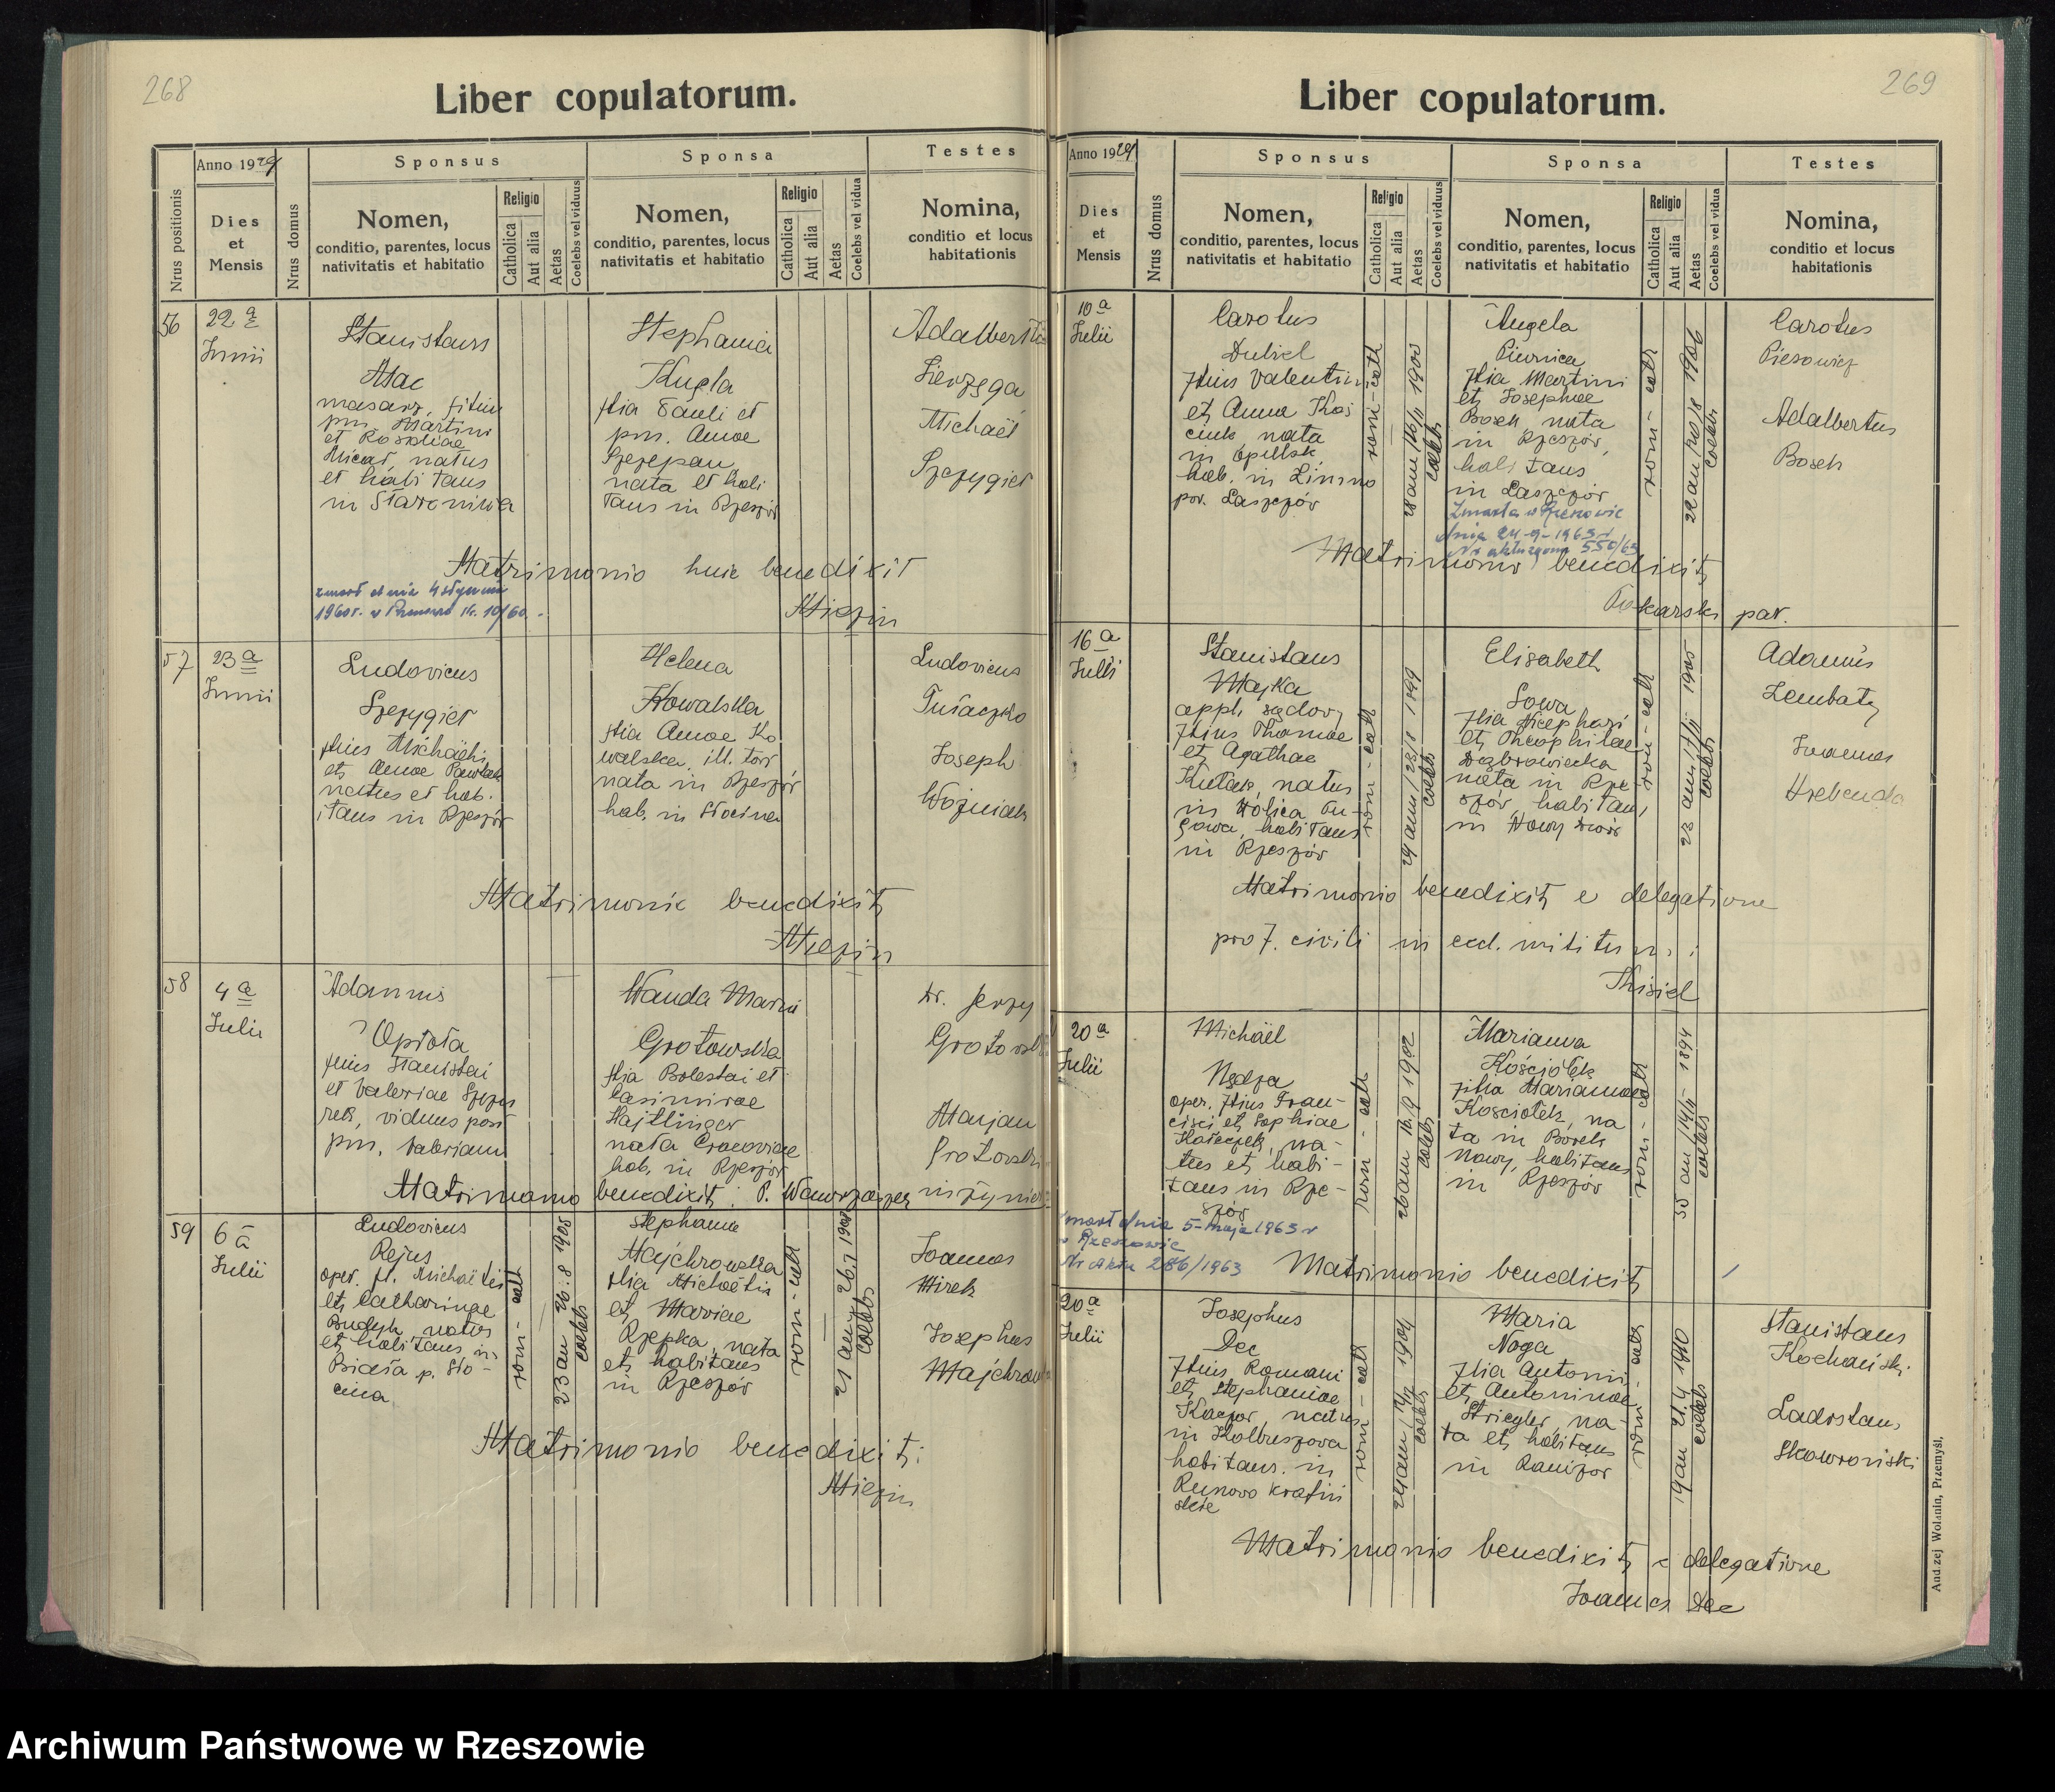 268
Liber copulatorum.
Nrus positionis
Anno 1929
Dies
et
Mensis
Nrus domus
Sponsus
Nomen,
conditio, parentes, locus
nativitatis et habitatio
Religio
Catholica
Aut alia
Aetas
Coelebs vel viduus
Sponsa
Nomen,
conditio, parentes, locus
nativitatis et habitatio
Religio
Catholica
Aut alia
Aetas
Coelebs vel vidua
Testes
Nomina,
conditio et locus
habitationis
56
22 a
Junii
Stanislaus
Mac
masarz, filius
pm. Martini
et Rosaliae
natus
et habitans
in Staroniwa
Stephania
Kugla
filia Pauli et
pm. Annae
Szczepan,
nata et habi
tans in Rzeszów
Adalbertus
Lierzęga
Michaël
Szczygieł
Matrimonio huic benedixit
Miezin
zmarł dnia 4 stycznia
1960 r. w Rzeszowie Nr. 10/60.
57
23 a
Junii
Ludovicus
Szczygieł
filius Michaëlis
et Annae Pawlak
natus et hab-
itans in Rzeszów
Helena
Kowalska
filia Annae Ko
walska, ill. tori
nata in Rzeszów
hab. in Słocina
Ludovicus
Tułaczko
Joseph
Woźniak
Matrimonio benedixit
Miezin
58
4 a
Julii
Adamus
Opioła
filius Stanislai
et Valeriae
viduus post
pm. Valeriam
Wanda Maria
Grotowska
filia Boleslai et
Casimirae
Hajtlinger
nata Cracoviae
hab. in Rzeszów
Dr. Jerzy
Grotowski
Marjan
Grotowski
inżynier
Matrimonio benedixit: P.
59
6 a
Julii
Ludovicus
Rejus
oper. fil. Michaëlis
et Catharinae
natus
et habitans in
Biała p. Sło-
cina
rom-cath
23 an 26.8 1905
coelebs
Stephania
Majchrowska
filia Michaëlis
et Mariae
Rzepka, nata
et habitans
in Rzeszów
rom-cath
21 an 26.7 1908
coelebs
Joannes
Mirek
Josephus
Majchrowski
Matrimonio benedixit:
Miezin
269
Liber copulatorum.
Anno 1929
Dies
et
Mensis
Nrus domus
Sponsus
Nomen,
conditio, parentes, locus
nativitatis et habitatio
Religio
Catholica
Aut alia
Aetas
Coelebs vel viduus
Sponsa
Nomen,
conditio, parentes, locus
nativitatis et habitatio
Religio
Catholica
Aut alia
Aetas
Coelebs vel vidua
Testes
Nomina,
conditio et locus
habitationis
10 a
Julii
Carolus
Dubiel
filius Valentini
et Annae Koś
ciuk, nata
in
hab. in
pow. Laszczów
rom-cath
coelebs
Angela
Piernica
filia Martini
et Josephae
Bosek nata
in Rzeszów,
habitans
in Laszczów
rom-cath
coelebs
Carolus
Pierowicz
Adalbertus
Bosek
Zmarła w Rzeszowie
dnia 24-9-1963 r
Nr aktu zgonu 550/63
Matrimonio benedixit
Tokarski par.
16 a
Julii
Stanislaus
Majka
appl. sądowy
filius Thomae
et Agathae
Kułak, natus
in Wolica Łu-
gowa, habitans
in Rzeszów
rom-cath
coelebs
Elisabeth
Sowa
filia Nicephori
et Theophilae
Dąbrowiecka
nata in Rze-
szów, habitans
in Nowy Dwór
rom-cath
coelebs
Adamus
Zembaty
Joannes
Hrebenda
Matrimonio benedixit e delegatione
pro f. civili in eccl. militum:
Kisiel
20 a
Julii
Michaël
Nędza
oper. filius Fran-
cisci et Sophiae
na-
tus et habi-
tans in Rze-
szów
rom-cath
26 ann 16.9 1902
coelebs
Marianna
Kościółek
filia Mariannae
Kościołek, na
ta in Borek
Nowy, habitans
in Rzeszów
rom-cath
coelebs
zmarł dnia 5-maja 1963 r
w Rzeszowie
Nr aktu 286/1963
Matrimonio benedixit
20 a
Julii
Josephus
Dec
filius Romani
et Stephaniae
Kacpor, natus
in Kolbuszowa
habitans. in
rom-cath
coelebs
Maria
Noga
filia Antonii
et Antoninae
Striegler, na-
ta et habitans
in Raniżów
rom-cath
19 an 21.4 1910
coelebs
Stanislaus
Kochański
Ladislaus
Skowroński
Matrimonio benedixit e delegatione
Joannes Dec
Andrzej Wolanin, Przemyśl.
Archiwum Państwowe w Rzeszowie